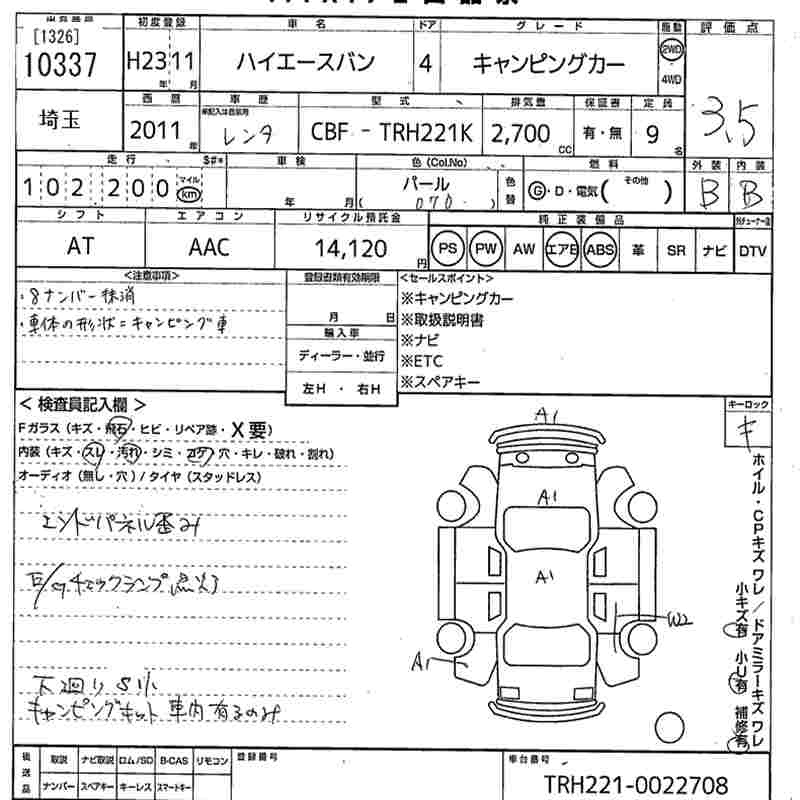 [1326]
10337
初度登録 車名 ドア グレード 駆動 評価点
H23 11 ハイエースバン 4 キャンピングカー 2WD 4WD
年 月
埼玉
西暦 車歴 型式 排気量 保証書 定員
2011年 レンタ CBF - TRH221K 2,700cc 有・無 9名 3.5
走行 $#* 車検 色(Col.No) 燃料 外装 内装
102200 マイル km 年 月 パール 070 色替 G・D・電気(その他) B B
シフト エアコン リサイクル預託金 純正装備品
AT AAC 14,120円 PS PW AW エアB ABS 革 SR ナビ DTV
<注意事項> 登録書類有効期限 <セールスポイント>
・8ナンバー抹消
・車体の形状=キャンピング車
月 日
輸入車
ディーラー・並行
左H ・ 右H
※キャンピングカー
※取扱説明書
※ナビ
※ETC
※スペアキー
< 検査員記入欄 >
Fガラス(キズ・飛石・ヒビ・リペア跡・X要)
内装(キズ・スレ・汚れ・シミ・コゲ・穴・キレ・破れ・割れ)
オーディオ(無し・穴)/タイヤ(スタッドレス)
エンドパネル歪み
E/gチェックランプ点灯
下廻りS小
キャンピングキット車内有るのみ
キーロック
キ
A1
A1
A1
W2
A1
ホイル・CPキズワレ/ドアミラーキズワレ
小キズ有 小U有 補修有
後送品 取説 ナビ取説 ロム/SD B-CAS リモコン
ナンバー スペアキー キーレス スマートキー
登録番号
車台番号
TRH221-0022708